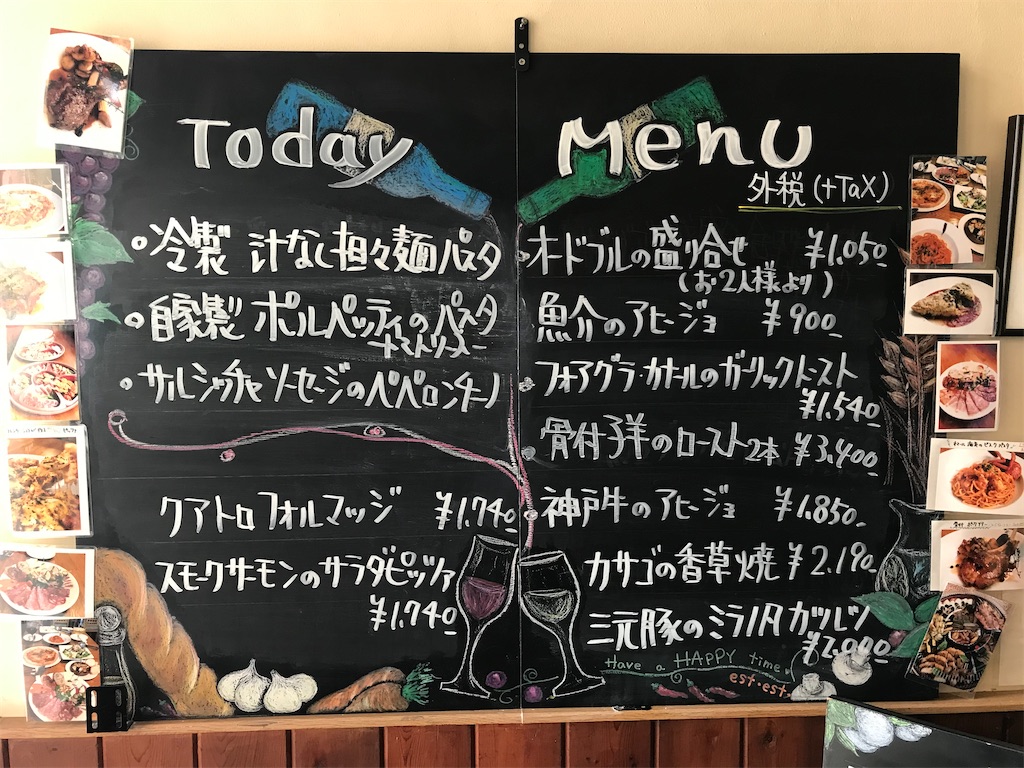 Today Menu
外税(+TaX)
冷製 汁なし担々麺パスタ
自家製 ポルペッティのパスタ
トマトソース
サルシッチャソーセージのペペロンチーノ
クアトロフォルマッジ ¥1.740
スモークサーモンのサラダピッツァ
¥1.740
オードブルの盛り合せ ¥1.050
(お2人様より)
魚介のアヒージョ ¥900
フォアグラ・カナールのガーリックトースト
¥1.540
骨付子羊のロースト2本 ¥3.400
神戸牛のアヒージョ ¥1.850
カサゴの香草焼 ¥2.190
三元豚のミラノ風カツレツ
¥2.000
Have a HAPPY time♪
est.est.